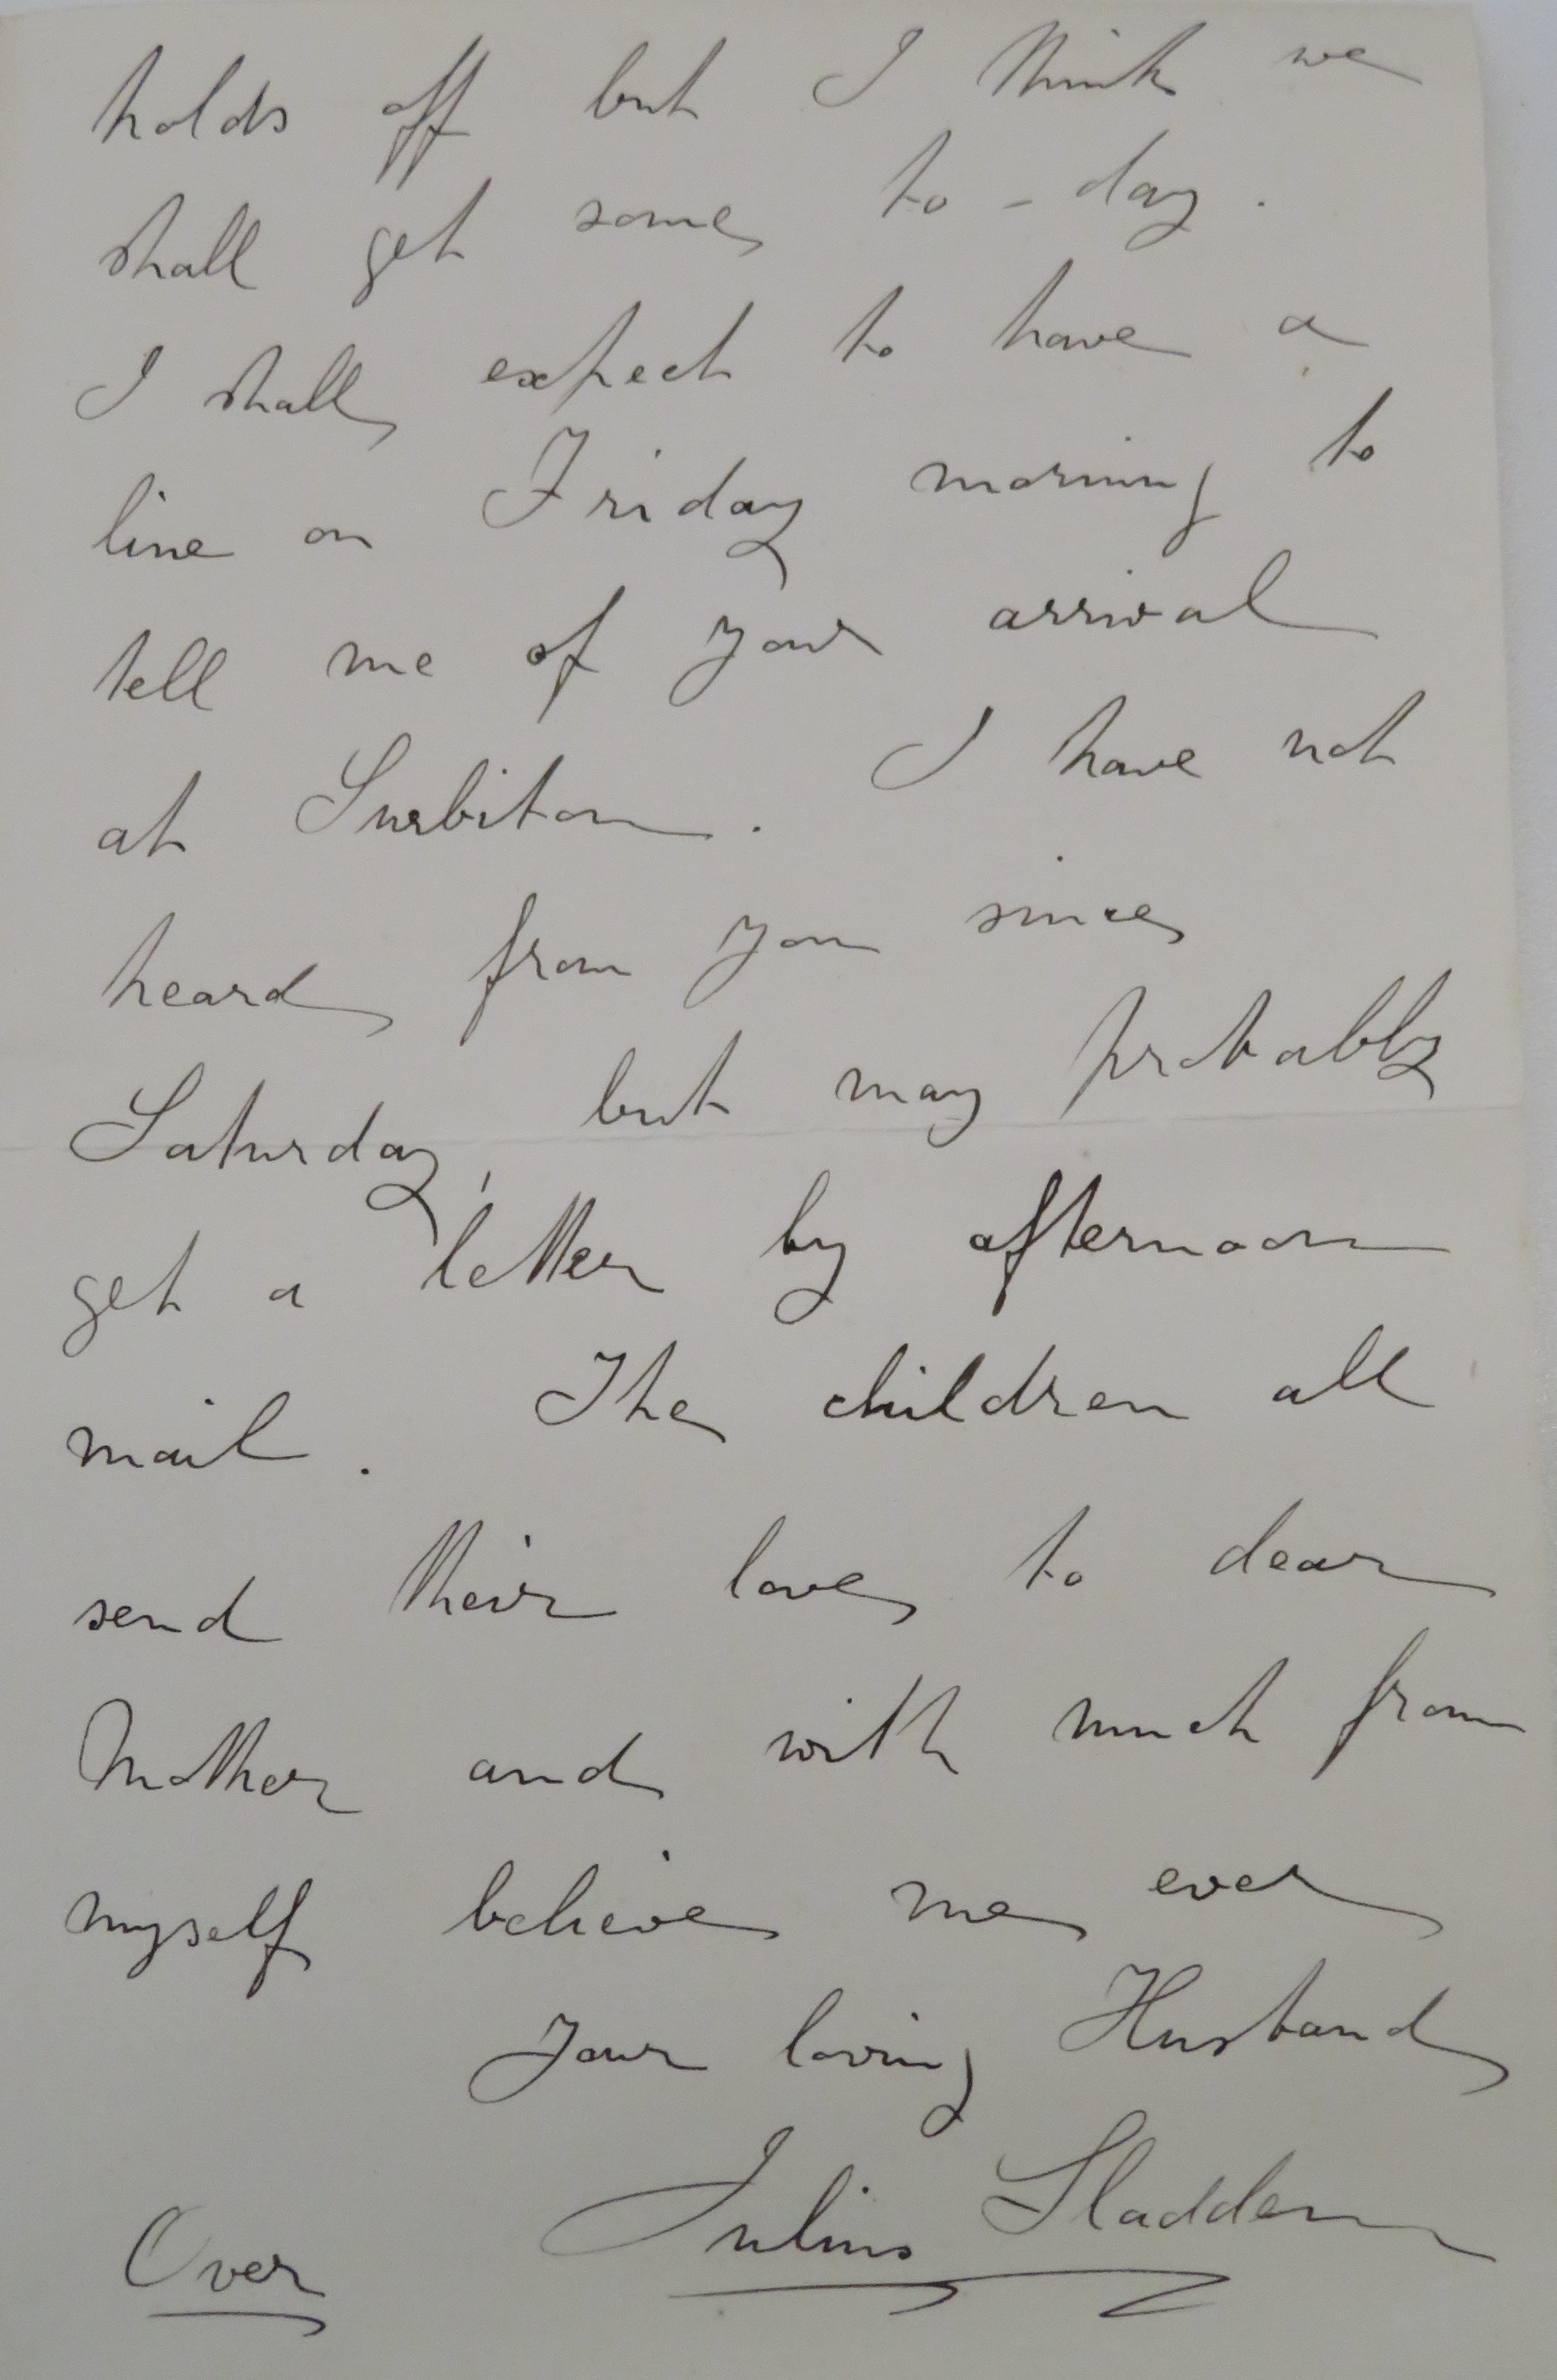 holds off but I think we
shall get some to-day.
I shall expect to have a
line on Friday morning to
tell me of your arrival
at Surbiton. I have not
heard from you since
Saturday, but may probably
get a letter by afternoon
mail. The children all
send their love to dear
Mother and with much from
myself believe me ever
Your loving Husband
Julius Sladden
Over